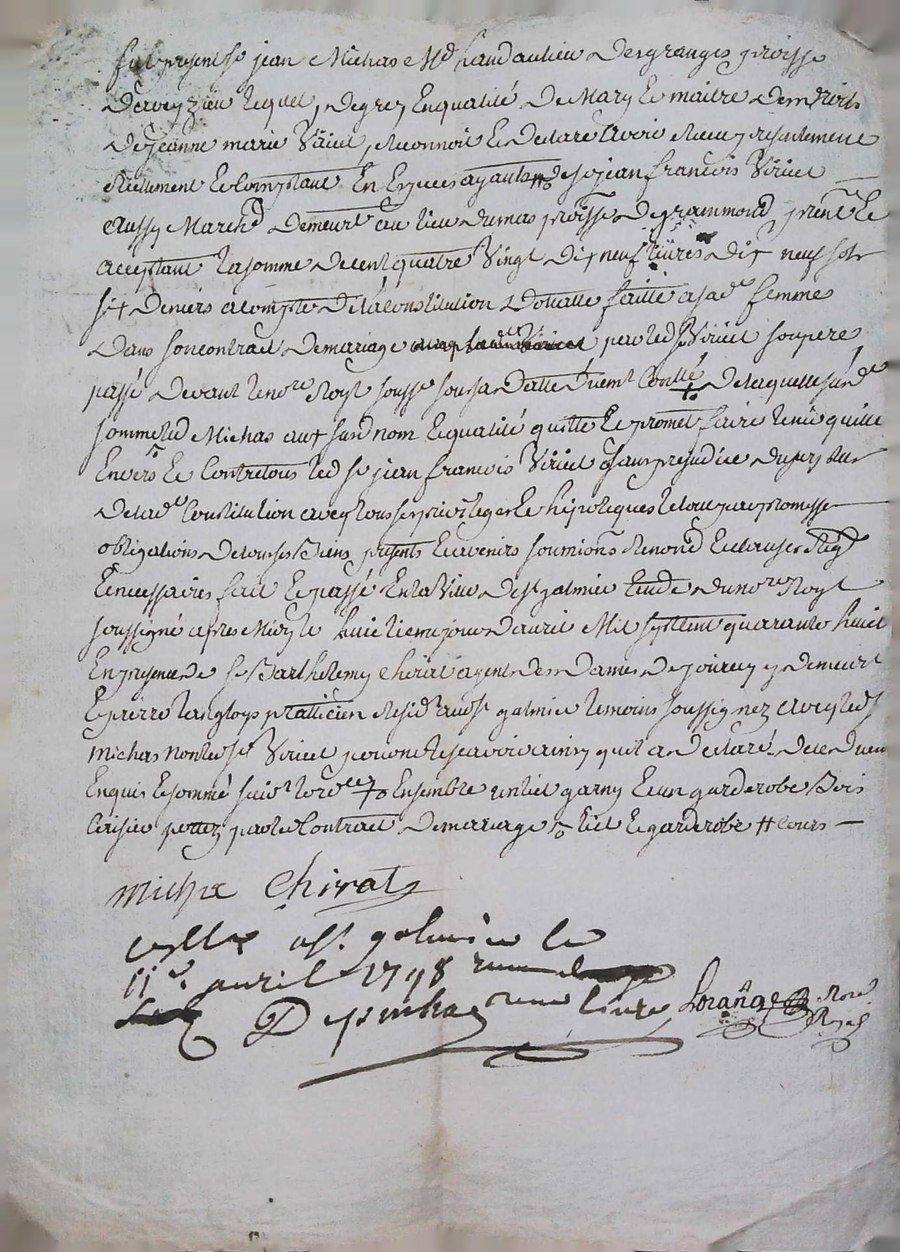 fut present sr jean Michas Md handaulieu Desgranges proisse
Daveyzieu lequel, Degrez Enqualité De Mary Et maitre Desdroits
De jeanne marie Viricel, Reconnoit Et Declare avoir Receu presentement
Reellement Et Comptant En Especes ayants # de sr jean francois Viricel
aussy Marchd Demeurt au lieu Dumas proisse De grammond, prent Et
acceptant la somme De cent quatre Vingt Dix neuf livres Dix neuf sols
six Deniers acompte De la Constitution Dotalle faitte a sade femme
Dans son contrat De mariage par led sr Viricel son pere
passé Devant le nore Royl soussé sous sa Datte Duemt Contlé De laquelle susde
somme led Michas aux susd nom Et qualité quitte Et promet faire tenir quitte
Envers Et Contre tous led sr jean francois Viricel sans prejudice Du
De lade Constitution avec tous ses privileges Et hipoteques Le tout par promesse
obligations De tous ses Biens presents Et avenirs soumions Renond Et clauses
Et necessaires fait Et passé En la Ville De st galmier Etude Du nore Royl
soussigné apres Midy le huictieme jour D'avril Mil sept cent quarante huict
En presence de sr Barthelemy Chirat agent des Dames De jourcey y Demeurt
Et pierre langloys pratticien Residt aud st galmier temoins soussignez avec led sr
Michas non led sr Viricel pour ne scavoir ainsy qu'il a Declaré De ce Duemt
Enquis Et sommé suivt lordce # Ensemble un lict garny Et un garderobe Bois
Cerisier portez par le Contrat De marriage # lict Et garderobe # Cours
Michas Chirat
Cllé a St galmier le
11e avril 1748
Depinhac une livre
Lorange Nore
Royl